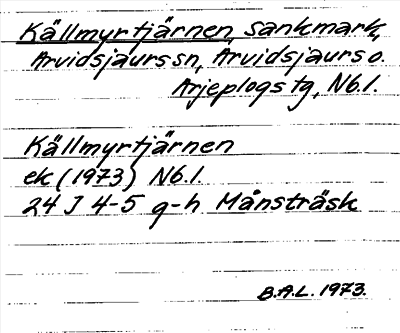 Källmyrtjärnen, sankmark,
Arvidsjaurs sn, Arvidsjaurs o.
Arjeplogs tg, Nb.l.
Källmyrtjärnen
ek (1973) Nb.l.
24 J 4-5 g-h Månsträsk
B.A.L. 1973.